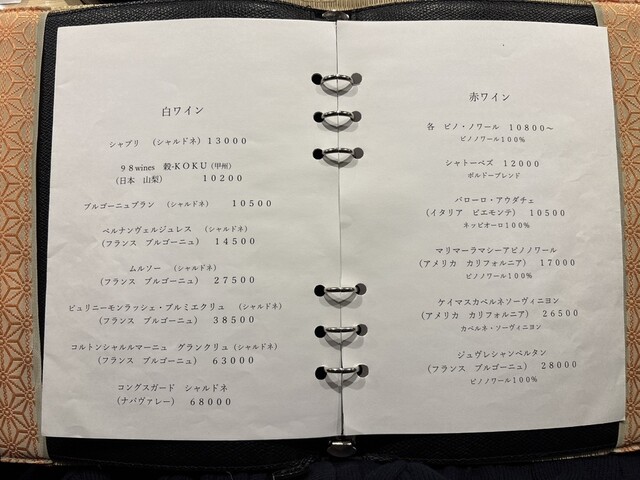 白ワイン
シャブリ （シャルドネ）13000
98wines 穀-KOKU（甲州）
（日本 山梨） 10200
ブルゴーニュブラン （シャルドネ） 10500
ペルナンヴェルジュレス （シャルドネ）
（フランス ブルゴーニュ） 14500
ムルソー （シャルドネ）
（フランス ブルゴーニュ） 27500
ピュリニーモンラッシェ・プルミエクリュ （シャルドネ）
（フランス ブルゴーニュ） 38500
コルトンシャルルマーニュ グランクリュ（シャルドネ）
（フランス ブルゴーニュ） 63000
コングスガード シャルドネ
（ナパヴァレー） 68000
赤ワイン
各 ピノ・ノワール 10800～
ピノノワール100%
シャトーペズ 12000
ボルドーブレンド
バローロ・アウダチェ
（イタリア ピエモンテ） 10500
ネッビオーロ100%
マリマーラマシーアピノノワール
（アメリカ カリフォルニア） 17000
ピノノワール100%
ケイマスカベルネソーヴィニヨン
（アメリカ カリフォルニア） 26500
カベルネ・ソーヴィニヨン
ジュヴレシャンベルタン
（フランス ブルゴーニュ） 28000
ピノノワール100%